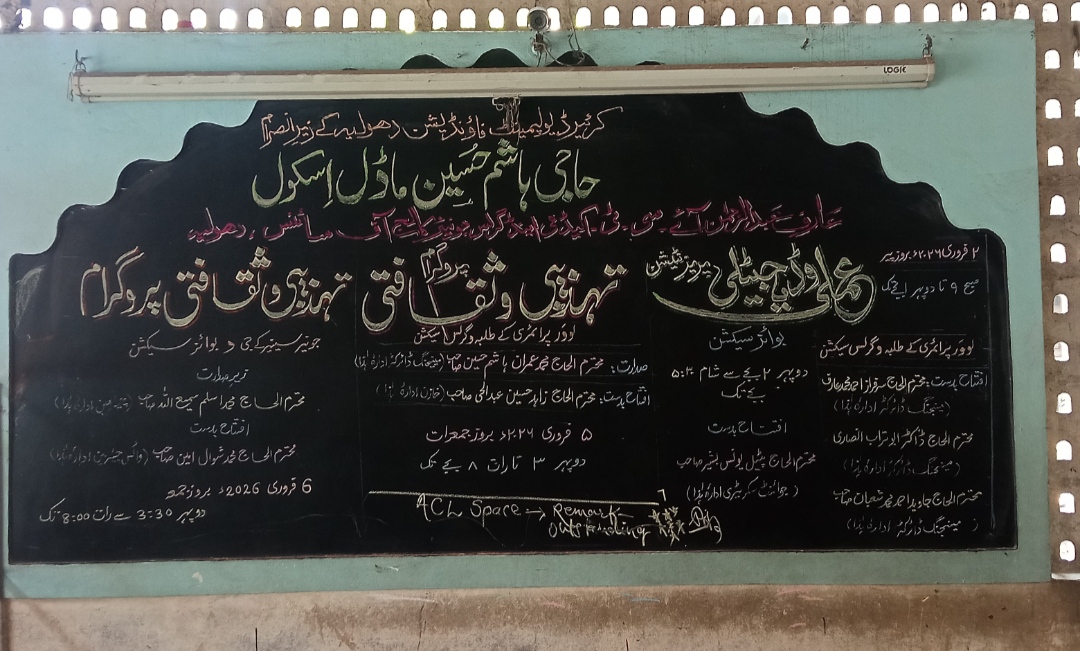 LOGIC
کریئر ڈیولپمینٹ فاؤنڈیشن دھولیہ کے زیرِ انصرام
حاجی ہاشم حُسین ماڈل اِسکول
آف سائنس ، دھولیہ
۲ فروری ۲۰۲۶ء بروز پیر
صبح ۹ تا دوپہر
لوور پرائمری کے طلبہ و گرلس سیکشن
افتتاح بدست : محترم الحاج سرفراز احمد محمد عارف
(مینجنگ ڈائرکٹر ادارہ ہٰذا)
محترم الحاج ڈاکٹر ابوتراب انصاری
(مینجنگ ڈائرکٹر ادارہ ہٰذا)
محترم الحاج جاوید احمد محمد شعبان صاحب
(مینجنگ ڈائرکٹر ادارہ ہٰذا)
عملی و ڈیجیٹلی پریزنٹیشن
بوائز سیکشن
دوپہر ۲ بجے سے شام ۵:۳۰
بجے تک
افتتاح بدست
محترم الحاج پٹیل یونس بشیر صاحب
(جوائنٹ سکریٹری ادارہ ہٰذا)
تہذیبی و ثقافتی پروگرام
لوور پرائمری کے طلبہ و گرلس سیکشن
صدارت : محترم الحاج محمد عمران ہاشم حسین صاحب (مینجنگ ڈائرکٹر ادارہ ہٰذا)
افتتاح بدست : محترم الحاج زاہد حسین عبدالحئی صاحب (خازن ادارہ ہٰذا)
۵ فروری ۲۰۲۶ء بروز جمعرات
دوپہر ۳ تا رات ۸ بجے تک
ACL Space → Remark-
Outstanding
تہذیبی و ثقافتی پروگرام
جونیئر سینیئر کے جی و بوائز سیکشن
زیر صدارت
محترم الحاج محمد اسلم سمیع اللہ صاحب
افتتاح بدست
محترم الحاج محمد شوال امین صاحب (وائس چیئرمین ادارہ ہٰذا)
6 فروری 2026ء بروز جمعہ
دوپہر 3:30 سے رات 8:00 تک